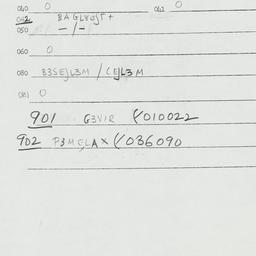 040 0 042 0
042 8AGLYOJT+
050 -/-
060 0
080 B3SEJL3M / CEJL3M
081 0
901 G3VIR Y010022
902 P3MCLAX Y036090